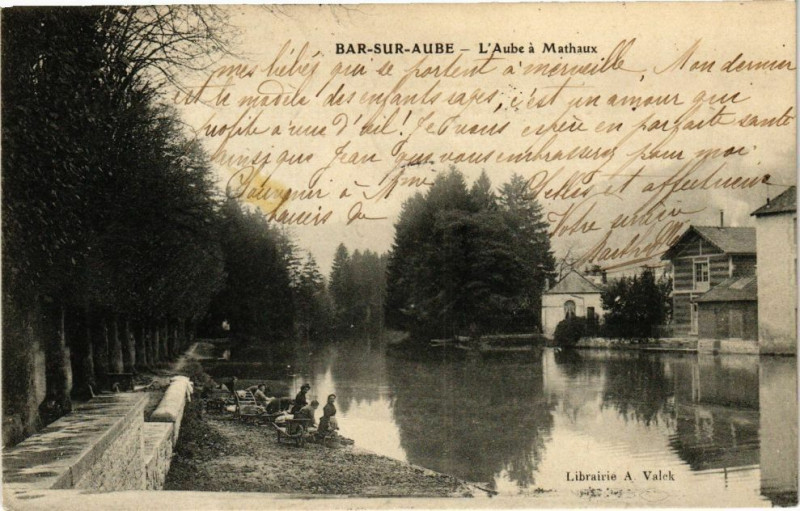 BAR-SUR-AUBE — L'Aube à Mathaux
mes bébés qui se portent à merveille, Mon dernier
est le modèle des enfants sages, c'est un amour qui
profite à vue d'œil! Je vous espère en parfaite santé
ainsi que Jean que vous embrasserez pour moi
Souvenir à Mme
baisers de
et affectueux
Votre
Librairie A. Valck